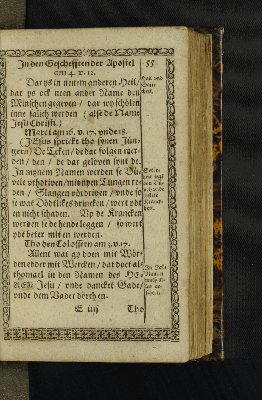 In den Geschefften der Apostel 55
am 4. v. 12.
Dar ys in nenem anderen Heil/
dar ys ock neen ander Name den
Minschen gegeven / dar wy schölen
inne salich werden ( alse de Name
Jesu Christi. )
Marci am 16. v. 17. unde 18.
(JEsus sprickt tho synen Jün-
gern) De Teken / de dar folgen wer-
den / den / de dar gelöven synt de.
In mynem Namen werden se Dü-
vele vthdriven / mit nyen Tungen re-
den / Slangen vördriven / vnde so
se wat Dödtlikes drincken / wert ydt
en nicht schaden. Vp de Krancken
werden se de hende leggen / so wert
ydt beter mit en werden.
Tho den Colossern am 3. v. 17.
Allent wat gy doen mit Wör-
den edder mit Wercken / dat doet al-
thomal in den Namen des HE-
REN Jesu / vnde dancket Gade/
vnde dem Vader dörch en.
E iiij Tho